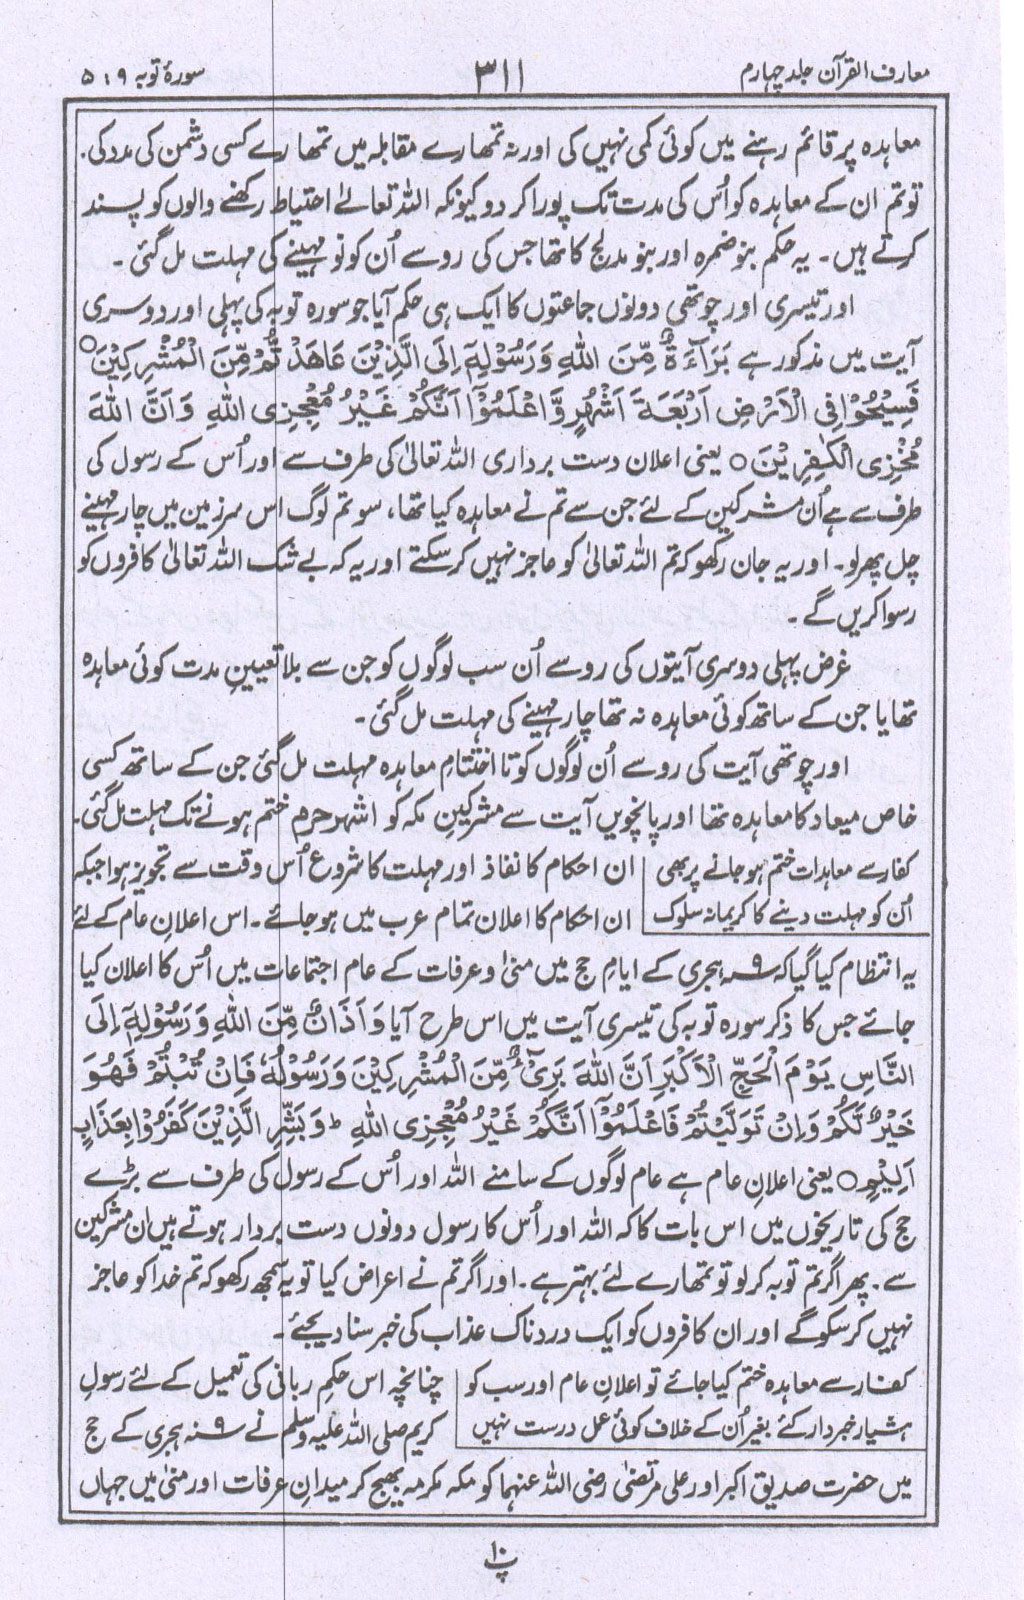 معارف القرآن جلد چہارم
۳۱۱
سورۂ توبہ ۹ : ۵
معاہدہ پر قائم رہنے میں کوئی کمی نہیں کی اور نہ تمھارے مقابلہ میں تمھارے کسی دشمن کی مدد کی.
تو تم ان کے معاہدہ کو اُس کی مدت تک پورا کر دو کیونکہ اللہ تعالےٰ احتیاط رکھنے والوں کو پسند
کرتے ہیں۔ یہ حکم بنو ضمرہ اور بنو مدلج کا تھا جس کی رو سے اُن کو نو مہینے کی مہلت مل گئی۔
اور تیسری اور چوتھی دونوں جماعتوں کا ایک ہی حکم آیا جو سورہ توبہ کی پہلی اور دوسری
آیت میں مذکور ہے بَرَآءَةٌ مِّنَ اللهِ وَرَسُوْلِهٖٓ اِلَى الَّذِيْنَ عَاهَدْتُّمْ مِّنَ الْمُشْرِكِيْنَ○
فَسِيْحُوْا فِي الْاَرْضِ اَرْبَعَةَ اَشْهُرٍ وَّاعْلَمُوْٓا اَنَّكُمْ غَيْرُ مُعْجِزِى اللهِ وَاَنَّ اللهَ
مُخْزِى الْكٰفِرِيْنَ○ یعنی اعلان دست برداری اللہ تعالیٰ کی طرف سے اور اُس کے رسول کی
طرف سے ہے اُن مشرکین کے لئے جن سے تم نے معاہدہ کیا تھا، سو تم لوگ اس سرزمین میں چار مہینے
چل پھر لو۔ اور یہ جان رکھو کہ تم اللہ تعالیٰ کو عاجز نہیں کر سکتے اور یہ کہ بے شک اللہ تعالیٰ کافروں کو
رسوا کریں گے۔
غرض پہلی دوسری آیتوں کی رو سے اُن سب لوگوں کو جن سے بلا تعیینِ مدت کوئی معاہدہ
تھا یا جن کے ساتھ کوئی معاہدہ نہ تھا چار مہینے کی مہلت مل گئی۔
اور چوتھی آیت کی رو سے اُن لوگوں کو تا اختتامِ معاہدہ مہلت مل گئی جن کے ساتھ کسی
خاص میعاد کا معاہدہ تھا اور پانچویں آیت سے مشرکینِ مکہ کو اشہر حرم ختم ہونے تک مہلت مل گئی۔
کفار سے معاہدات ختم ہو جانے پر بھی
اُن کو مہلت دینے کا کریمانہ سلوک
ان احکام کا نفاذ اور مہلت کا شروع اُس وقت سے تجویز ہوا جبکہ
ان احکام کا اعلان تمام عرب میں ہو جائے۔ اس اعلانِ عام کے لئے
یہ انتظام کیا گیا کہ ۹ سنہ ہجری کے ایامِ حج میں منیٰ و عرفات کے عام اجتماعات میں اُس کا اعلان کیا
جائے جس کا ذکر سورہ توبہ کی تیسری آیت میں اس طرح آیا وَاَذَانٌ مِّنَ اللهِ وَرَسُوْلِهٖٓ اِلَى
النَّاسِ يَوْمَ الْحَجِّ الْاَكْبَرِ اَنَّ اللهَ بَرِىْٓءٌ مِّنَ الْمُشْرِكِيْنَ وَرَسُوْلُهٗ فَاِنْ تُبْتُمْ فَهُوَ
خَيْرٌ لَّكُمْ وَاِنْ تَوَلَّيْتُمْ فَاعْلَمُوْٓا اَنَّكُمْ غَيْرُ مُعْجِزِى اللهِ ط وَبَشِّرِ الَّذِيْنَ كَفَرُوْا بِعَذَابٍ
اَلِيْمٍ○ یعنی اعلانِ عام ہے عام لوگوں کے سامنے اللہ اور اُس کے رسول کی طرف سے بڑے
حج کی تاریخوں میں اس بات کا کہ اللہ اور اُس کا رسول دونوں دست بردار ہوتے ہیں ان مشرکین
سے. پھر اگر تم توبہ کر لو تو تمھارے لئے بہتر ہے۔ اور اگر تم نے اعراض کیا تو یہ سمجھ رکھو کہ تم خدا کو عاجز
نہیں کر سکو گے اور ان کافروں کو ایک دردناک عذاب کی خبر سنا دیجئے۔
کفار سے معاہدہ ختم کیا جائے تو اعلانِ عام اور سب کو
ہشیار خبردار کئے بغیر اُن کے خلاف کوئی عمل درست نہیں
چنانچہ اس حکمِ ربانی کی تعمیل کے لئے رسولِ
کریم صلی اللہ علیہ وسلم نے ۹ سنہ ہجری کے حج
میں حضرت صدیق اکبر اور علی مرتضیٰ رضی اللہ عنہما کو مکہ مکرمہ بھیج کر میدانِ عرفات اور منیٰ میں جہاں
پ ۱۰